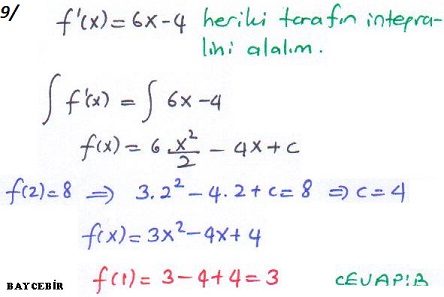 9/ f'(x)=6x-4 heriki tarafın integra-
lini alalım.
∫f'(x) = ∫ 6x-4
f(x) = 6.x²/2 - 4x+c
f(2)=8 ⇒ 3.2²-4.2+c=8 ⇒ c=4
f(x)=3x²-4x+4
BAYCEBİR f(1)=3-4+4=3 CEVAP:B